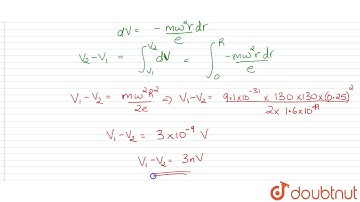 dV = - mω²r dr / e
V₂-V₁ = ∫_{V₁}^{V₂} dV = ∫_0^R -mω²r dr / e
V₁-V₂ = mω²R² / 2e ⇒ V₁-V₂ = 9.1x10⁻³¹ x 130x130x(0.25)² / 2x 1.6x10⁻¹⁹
V₁-V₂ = 3x10⁻⁹ V
V₁-V₂ = 3nV
doubtnut